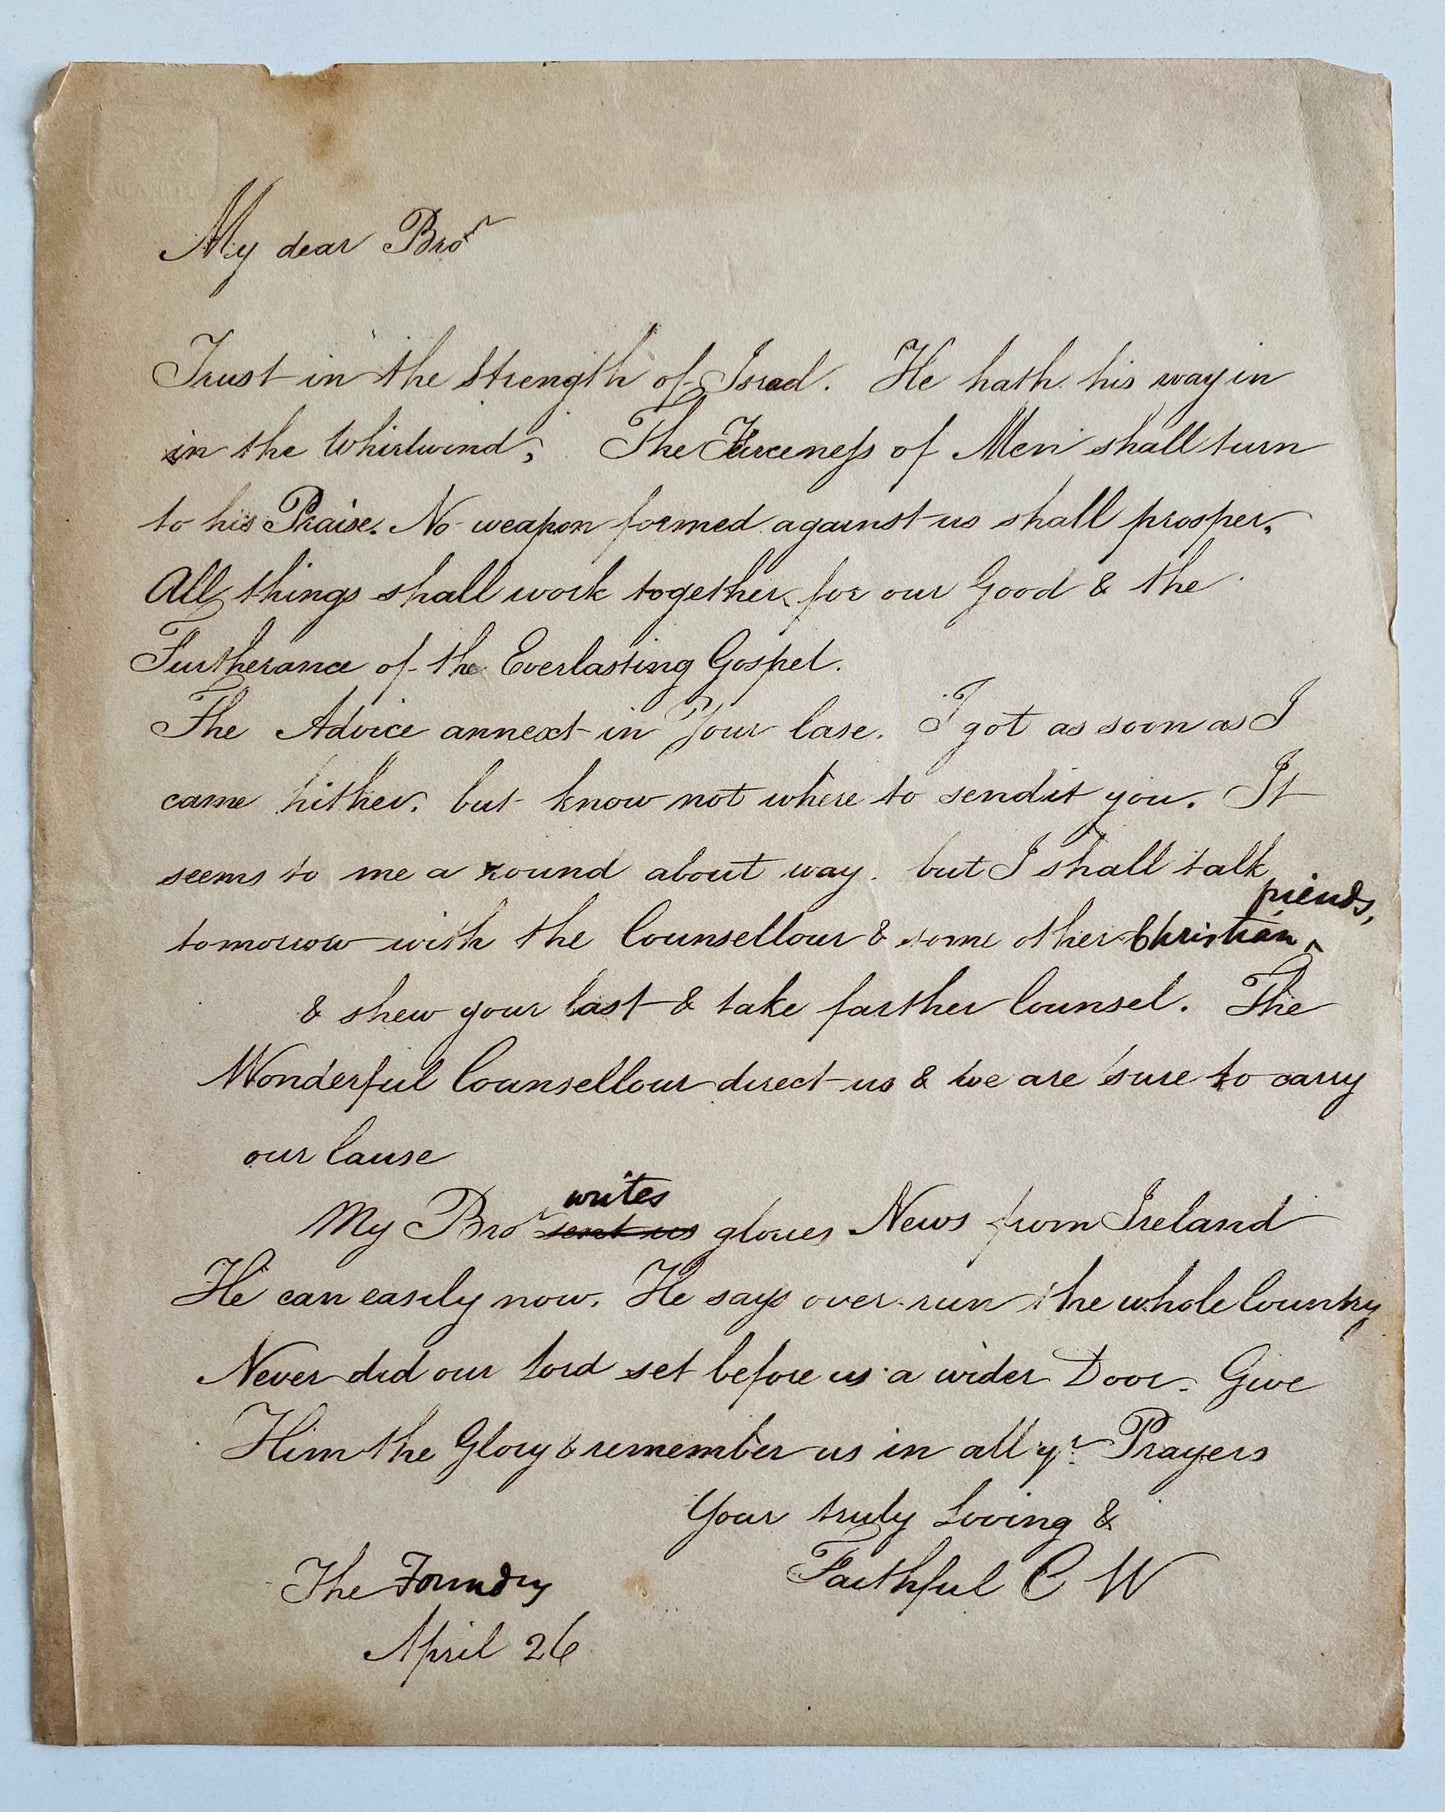 My dear Bro^r
Trust in the Strength of Israel. He hath his way in
in the Whirlwind; The Fierceness of Men shall turn
to his Praise. No weapon formed against us shall prosper.
All things shall work together for our Good & the
Furtherance of the Everlasting Gospel.
The Advice annext in Your Case. I got as soon as I
came hither. but know not where to send it you. It
seems to me a round about way. but I shall talk
friends,
tomorrow with the Counsellour & some other Christian ^
& shew your last & take farther Counsel. The
Wonderful Counsellour direct us & we are sure to carry
our Cause
writes
My Bro^r sent us glories News from Ireland
He can easily now. He says over-run the whole Country
Never did our Lord set before us a wider Door. Give
Him the Glory & remember us in all y^r Prayers
Your truly Loving &
Faithful C W
The Foundry
April 26